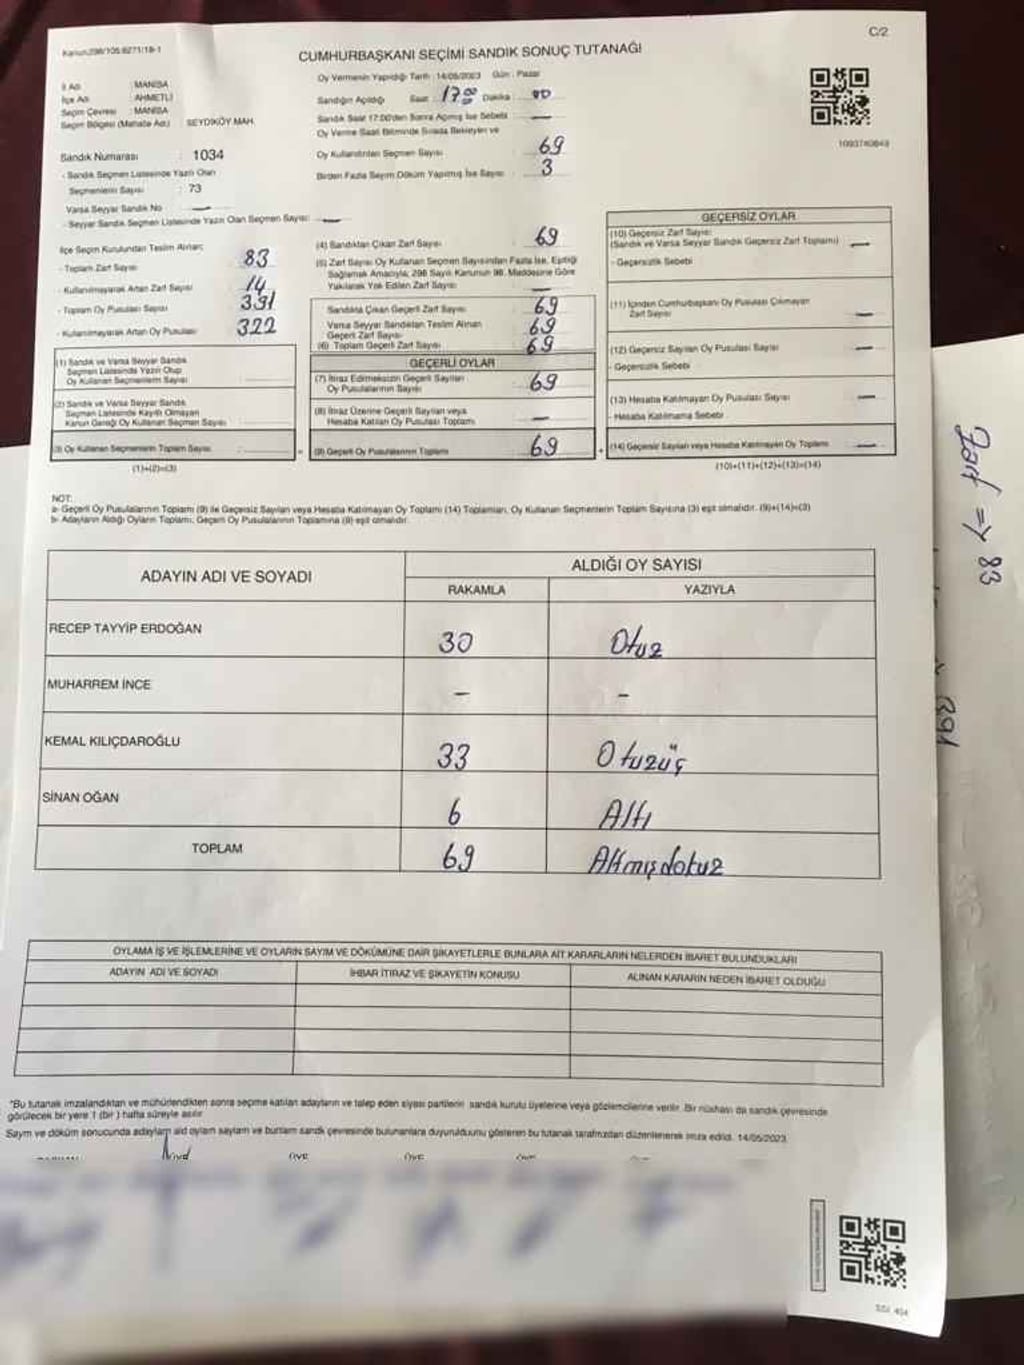 Kanun:298/105.6271/18-1
C/2
CUMHURBAŞKANI SEÇİMİ SANDIK SONUÇ TUTANAĞI
İl Adı : MANİSA
İlçe Adı : AHMETLİ
Seçim Çevresi : MANİSA
Seçim Bölgesi (Mahalle Adı) : SEYDİKÖY MAH.
Sandık Numarası : 1034
- Sandık Seçmen Listesinde Yazılı Olan
Seçmenlerin Sayısı : 73
Varsa Seyyar Sandık No —
- Seyyar Sandık Seçmen Listesinde Yazılı Olan Seçmen Sayısı : —
Oy Vermenin Yapıldığı Tarih : 14/05/2023 Gün : Pazar
Sandığın Açıldığı Saat : 17.00 Dakika : 00
Sandık Saat 17:00'den Sonra Açılmış İse Sebebi —
Oy Verme Saati Bitiminde Sırada Bekleyen ve
Oy Kullandırılan Seçmen Sayısı : 69
Birden Fazla Sayım Döküm Yapılmış İse Sayısı : 3
1093740843
İlçe Seçim Kurulundan Teslim Alınan;
- Toplam Zarf Sayısı : 83
- Kullanılmayarak Artan Zarf Sayısı : 14
- Toplam Oy Pusulası Sayısı : 391
- Kullanılmayarak Artan Oy Pusulası : 322
(1) Sandık ve Varsa Seyyar Sandık
Seçmen Listesinde Yazılı Olup
Oy Kullanan Seçmenlerin Sayısı :
(2) Sandık ve Varsa Seyyar Sandık
Seçmen Listesinde Kayıtlı Olmayan
Kanun Gereği Oy Kullanan Seçmen Sayısı :
(3) Oy Kullanan Seçmenlerin Toplam Sayısı :
(1)+(2)=(3)
(4) Sandıktan Çıkan Zarf Sayısı : 69
(5) Zarf Sayısı Oy Kullanan Seçmen Sayısından Fazla İse, Eşitliği
Sağlamak Amacıyla, 298 Sayılı Kanunun 98. Maddesine Göre
Yakılarak Yok Edilen Zarf Sayısı : —
Sandıkta Çıkan Geçerli Zarf Sayısı : 69
Varsa Seyyar Sandıktan Teslim Alınan
Geçerli Zarf Sayısı : 69
(6) Toplam Geçerli Zarf Sayısı : 69
GEÇERLİ OYLAR
(7) İtiraz Edilmeksizin Geçerli Sayılan
Oy Pusulalarının Sayısı : 69
(8) İtiraz Üzerine Geçerli Sayılan veya
Hesaba Katılan Oy Pusulası Toplamı : —
(9) Geçerli Oy Pusulalarının Toplamı : 69
GEÇERSİZ OYLAR
(10) Geçersiz Zarf Sayısı
(Sandık ve Varsa Seyyar Sandık Geçersiz Zarf Toplamı) : —
- Geçersizlik Sebebi
(11) İçinden Cumhurbaşkanı Oy Pusulası Çıkmayan
Zarf Sayısı : —
(12) Geçersiz Sayılan Oy Pusulası Sayısı : —
- Geçersizlik Sebebi
(13) Hesaba Katılmayan Oy Pusulası Sayısı : —
- Hesaba Katılmama Sebebi
(14) Geçersiz Sayılan veya Hesaba Katılmayan Oy Toplamı : —
(10)+(11)+(12)+(13)=(14)
NOT:
a- Geçerli Oy Pusulalarının Toplamı (9) ile Geçersiz Sayılan veya Hesaba Katılmayan Oy Toplamı (14) Toplamları, Oy Kullanan Seçmenlerin Toplam Sayısına (3) eşit olmalıdır. (9)+(14)=(3)
b- Adayların Aldığı Oyların Toplamı, Geçerli Oy Pusulalarının Toplamına (9) eşit olmalıdır.
ADAYIN ADI VE SOYADI
ALDIĞI OY SAYISI
RAKAMLA YAZIYLA
RECEP TAYYİP ERDOĞAN 30 Otuz
MUHARREM İNCE - -
KEMAL KILIÇDAROĞLU 33 Otuzüç
SİNAN OĞAN 6 Altı
TOPLAM 69 Altmışdokuz
Zarf => 83
391
OYLAMA İŞ VE İŞLEMLERİNE VE OYLARIN SAYIM VE DÖKÜMÜNE DAİR ŞİKAYETLERLE BUNLARA AİT KARARLARIN NELERDEN İBARET BULUNDUKLARI
ADAYIN ADI VE SOYADI İHBAR İTİRAZ VE ŞİKAYETİN KONUSU ALINAN KARARIN NEDEN İBARET OLDUĞU
*Bu tutanak imzalandıktan ve mühürlendikten sonra seçime katılan adayların ve talep eden siyasi partilerin sandık kurulu üyelerine veya gözlemcilerine verilir. Bir nüshası da sandık çevresinde
görülecek bir yere 1 (bir) hafta süreyle asılır.
Sayım ve döküm sonucunda adayların aldığı oyların sayıları ve bunların sandık çevresinde bulunanlara duyurulduğunu gösteren bu tutanak tarafımızdan düzenlenerek imza edildi. 14/05/2023